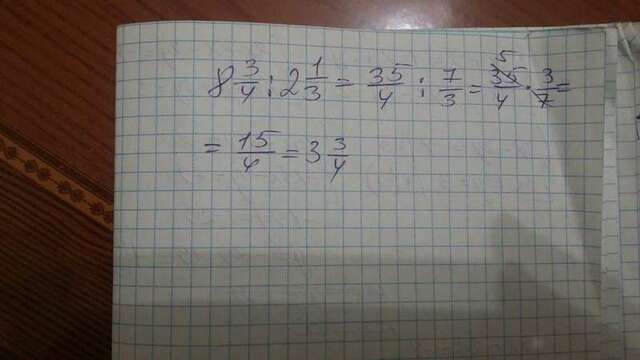 8 3/4 : 2 1/3 = 35/4 : 7/3 = 35/4 · 3/7 = 5
= 15/4 = 3 3/4